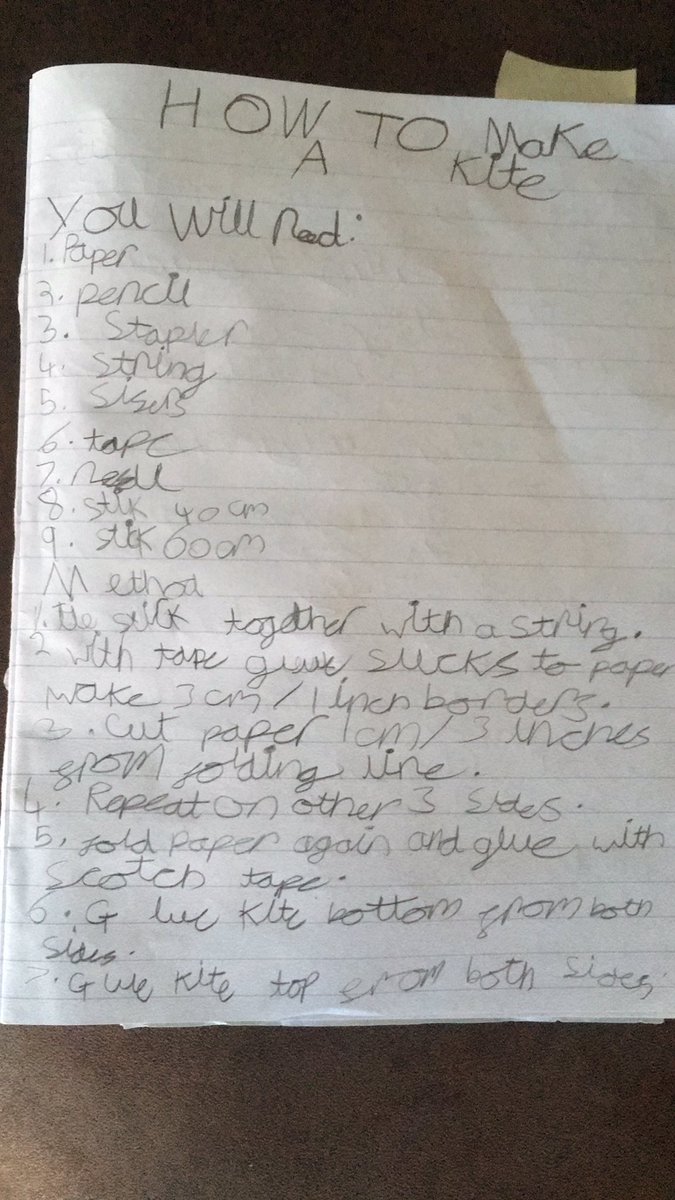 HOW TO Make
A Kite
You Will Need:
1. Paper
2. pencil
3. Stapler
4. string
5. Sisers
6. tape
7. Needl
8. stik 40cm
9. stik 60cm
Method
1. tie stik together with a string.
2 with tape glue sticks to paper
make 3cm/1 inch borders.
3. Cut paper 1cm/3 inches
from folding line.
4. Repeat on other 3 sides.
5, fold paper again and glue with
scotch tape.
6. Glue Kite bottom from both
sides.
7. Glue Kite top from both sides.